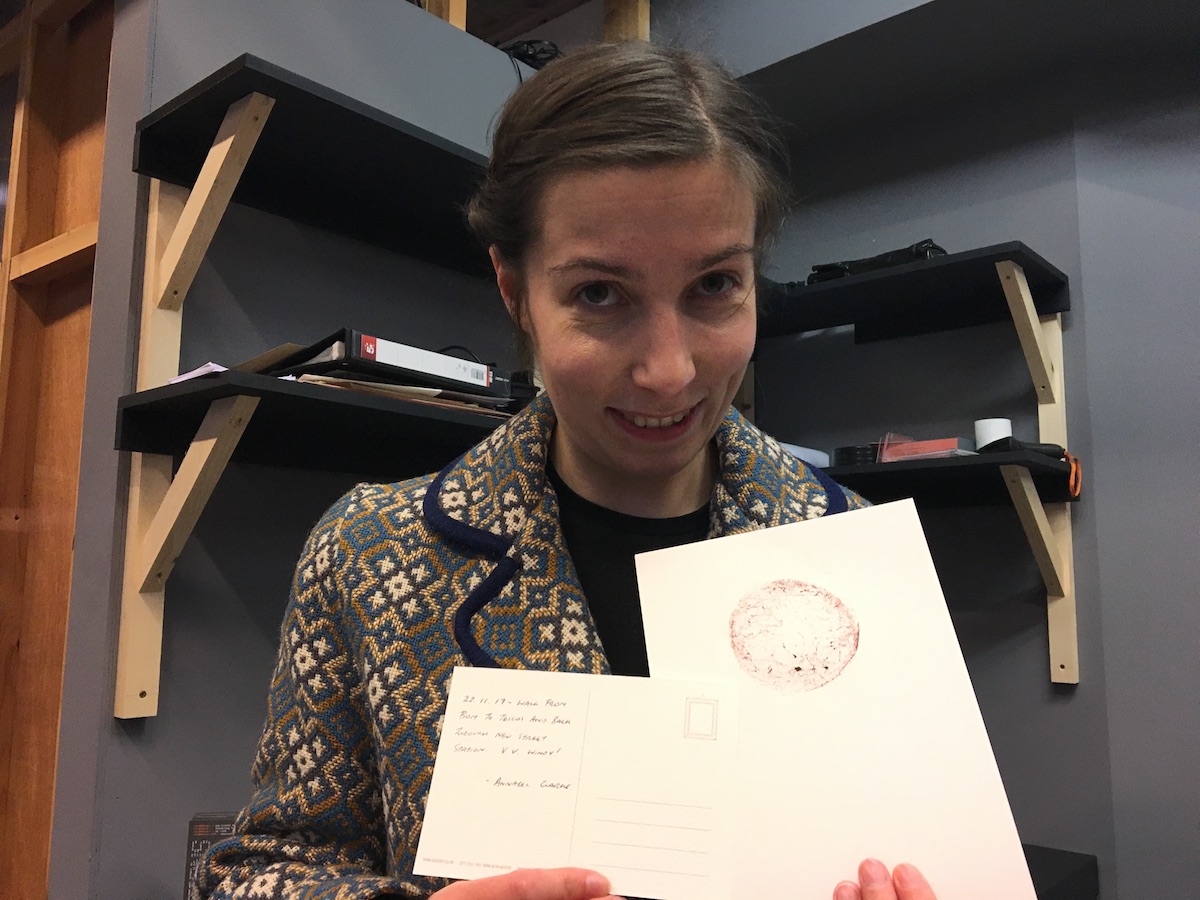 22.11.17 - WALK FROM
BOM TO TESCOS AND BACK
THROUGH NEW STREET
STATION. V.V. WINDY!
- ANNABEL CLARKE